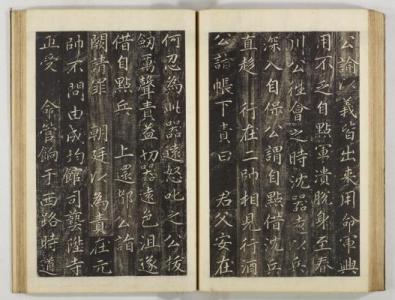 公諭以義皆出來用命軍興
用不乏自點軍潰脫身至春
川公往會之時沈器遠以兵
深入自保公謂自點借沈兵
直趍 行在二帥相見行酒
公詣帳下責曰 君父安在
何忍為此器遠怒叱之公拔
劒厲聲責益切器遠色沮遂
借自點兵 上還都公詣
闕請罪 朝廷以為責在元
帥不問由成均館司藝陞寺
正受 命管餉于西路時道